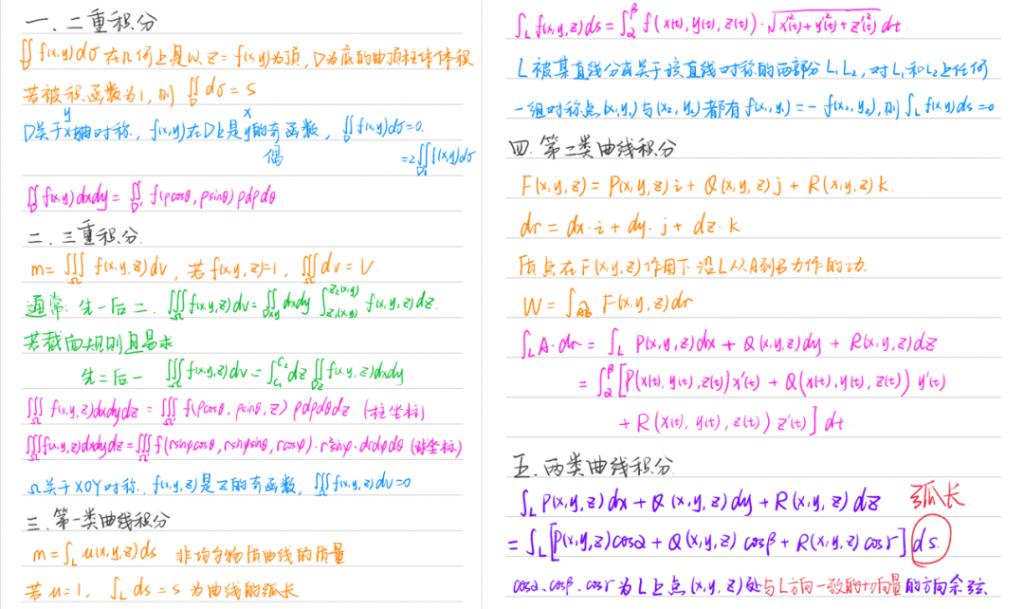 一、二重积分
∬_D f(x,y)dσ 在几何上是以 z=f(x,y)为顶, D为底的曲顶柱体体积
若被积函数为1, 则 ∬_D dσ = S
y x
D关于x轴对称, f(x,y)在D上是y的奇函数, ∬_D f(x,y)dσ=0.
偶 =2∬_{D₁} f(x,y)dσ
∬_D f(x,y)dxdy = ∬_{D'} f(ρcosθ, ρsinθ) ρdρdθ
二、三重积分.
m=∭_Ω f(x,y,z)dv, 若f(x,y,z)=1, ∭_Ω dv = V
通常: 先一后二. ∭_Ω f(x,y,z)dv=∬_{Dxy} dxdy ∫_{z₁(x,y)}^{z₂(x,y)} f(x,y,z)dz.
若截面规则且易求
先二后一 ∭_Ω f(x,y,z)dv=∫_{c₁}^{c₂} dz ∬_{Dz} f(x,y,z)dxdy
∭_Ω f(x,y,z)dxdydz = ∭_Ω f(ρcosθ, ρsinθ, z) ρdρdθdz (柱坐标)
∭_Ω f(x,y,z)dxdydz=∭_Ω f(rsinφcosθ, rsinφsinθ, rcosφ)·r²sinφ·drdφdθ (球坐标)
Ω关于XOY对称, f(x,y,z)是z的奇函数, ∭_Ω f(x,y,z)dv=0
三、第一类曲线积分
m=∫_L u(x,y,z)ds 非均匀物质曲线的质量
若u=1, ∫_L ds=s 为曲线的弧长
∫_L f(x,y,z)ds=∫_α^β f(x(t),y(t),z(t))·√(x'²(t)+y'²(t)+z'²(t)) dt
L被某直线分为关于该直线对称的两部分L₁L₂, 对L₁和L₂上任何
一组对称点(x₁,y₁)与(x₂,y₂)都有f(x₁,y₁)=-f(x₂,y₂),则∫_L f(x,y)ds=0
四.第二类曲线积分
F(x,y,z)=P(x,y,z)i+Q(x,y,z)j+R(x,y,z)k.
dr=dx·i+dy·j+dz·k
质点在F(x,y,z)作用下沿L从A到B力作的功.
W=∫_{AB} F(x,y,z)dr
∫_L A·dr=∫_L P(x,y,z)dx+Q(x,y,z)dy+R(x,y,z)dz
=∫_α^β [P(x(t),y(t),z(t))x'(t)+Q(x(t),y(t),z(t))y'(t)
+R(x(t),y(t),z(t))z'(t)]dt
五.两类曲线积分
∫_L P(x,y,z)dx+Q(x,y,z)dy+R(x,y,z)dz 弧长
=∫_L[P(x,y,z)cosα+Q(x,y,z)cosβ+R(x,y,z)cosr]ds.
cosα.cosβ.cosr为L上点(x,y,z)处与L方向一致的切向量的方向余弦.